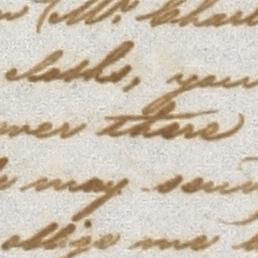 Mr. Charl
cloths, you
ever there
may sen
oblige me